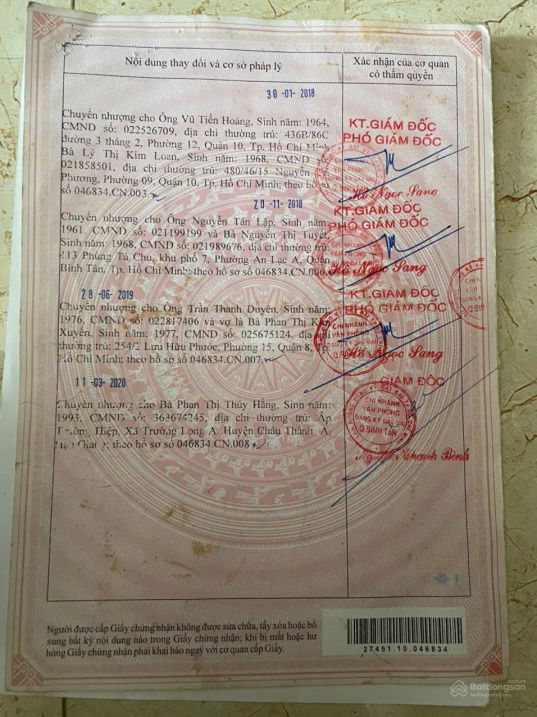 Nội dung thay đổi và cơ sở pháp lý
Xác nhận của cơ quan
có thẩm quyền
30-01-2018
Chuyển nhượng cho Ông Vũ Tiến Hoàng, Sinh năm: 1964,
CMND số: 022526709, địa chỉ thường trú: 436B/86C
đường 3 tháng 2, Phường 12, Quận 10, Tp. Hồ Chí Minh
Bà Lý Thị Kim Loan, Sinh năm: 1968, CMND số
021858501, địa chỉ thường trú: 480/46/15 Nguyễn
Phương, Phường 09, Quận 10, Tp. Hồ Chí Minh; theo hồ sơ
số 046834.CN.003
KT.GIÁM ĐỐC
PHÓ GIÁM ĐỐC
Hồ Ngọc Sang
20-11-2018
Chuyển nhượng cho Ông Nguyễn Tấn Lập, Sinh năm
1961, CMND số: 021199199 và Bà Nguyễn Thị Tuyết,
Sinh năm: 1968, CMND số: 021989676, địa chỉ thường trú:
113 Phùng Tá Chu, khu phố 7, Phường An Lạc A, Quận
Bình Tân, Tp. Hồ Chí Minh; theo hồ sơ số 046834.CN.006
KT.GIÁM ĐỐC
PHÓ GIÁM ĐỐC
Hồ Ngọc Sang
28-06-2019
Chuyển nhượng cho Ông Trần Thanh Duyên, Sinh năm
1976, CMND số: 022817406 và vợ là Bà Phan Thị Kim
Xuyến, Sinh năm: 1977, CMND số: 025675124, địa chỉ
thường trú: 254/2 Lưu Hữu Phước, Phường 15, Quận 8, Tp
Hồ Chí Minh; theo hồ sơ số 046834.CN.007
KT.GIÁM ĐỐC
PHÓ GIÁM ĐỐC
CHI NHÁNH
VĂN PHÒNG
Hồ Ngọc Sang
11-03-2020
Chuyển nhượng cho Bà Phan Thị Thúy Hằng, Sinh năm:
1993, CMND số: 363674245, địa chỉ thường trú: Ấp
Trường Hiệp, Xã Trường Long A, Huyện Châu Thành A,
Hậu Giang; theo hồ sơ số 046834.CN.008
GIÁM ĐỐC
CHI NHÁNH
VĂN PHÒNG
ĐĂNG KÝ ĐẤT ĐAI
Q.BÌNH TÂN
Thanh Bình
Người được cấp Giấy chứng nhận không được sửa chữa, tẩy xóa hoặc bổ
sung bất kỳ nội dung nào trong Giấy chứng nhận; khi bị mất hoặc hư
hỏng Giấy chứng nhận phải khai báo ngay với cơ quan cấp Giấy.
27451.10.046834
Batdongsan
by PropertyGuru